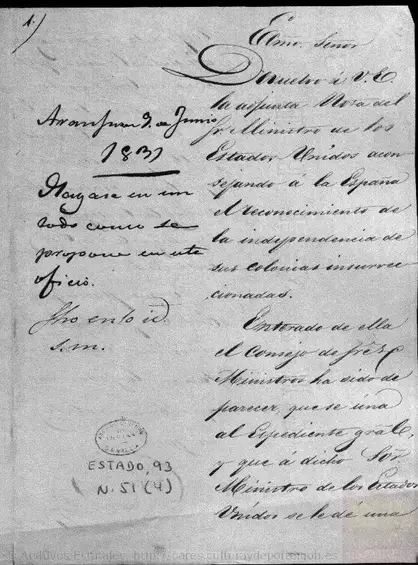 1.)
Aranjuez 9. de Junio
1831
Hagase en un
todo como se
propone en este
oficio.
fho en lo id.
s.m.
ESTADO, 93
N. 51 (4)
Exmo. Señor
Devuelvo á V.E.
la adjunta Nota del
Sr. Ministro de los
Estados Unidos acon
sejando á la España
el reconocimiento de
la independencia de
sus colonias insurrec
cionadas.
Enterado de ella
el Consejo de Sres.
Ministros ha sido de
parecer, que se una
al Expediente gral.,
y que á dicho Sor.
Ministro de los Estados
Unidos se le dé una